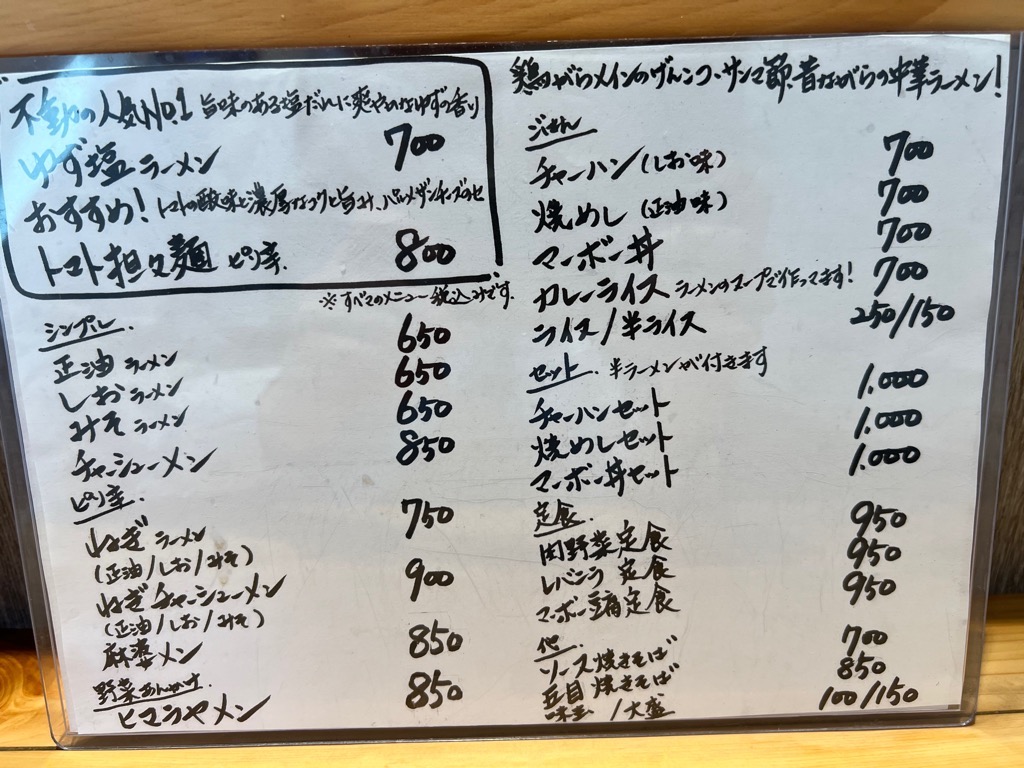 不動の人気No.1 旨味のある塩だれに爽やかなゆずの香り
ゆず塩ラーメン 700
おすすめ! トマトの酸味と濃厚なコクと旨み、パルメザンチーズのせ
トマト担々麺 ピリ辛. 800
※すべてのメニュー税込みです.
シンプル.
正油ラーメン 650
しおラーメン 650
みそラーメン 650
チャーシューメン 850
ピリ辛.
ねぎラーメン 750
(正油/しお/みそ)
ねぎチャーシューメン 900
(正油/しお/みそ)
麻婆メン 850
野菜あんかけ.
ヒマラヤメン 850
鶏がらメインのげんこつ、サンマ節、昔ながらの中華ラーメン!
ごはん
チャーハン(しお味) 700
焼めし(正油味) 700
マーボー丼 700
カレーライス ラーメンのスープで作ってます! 700
ライス/半ライス 250/150
セット. 半ラーメンが付きます
チャーハンセット 1.000
焼めしセット 1.000
マーボー丼セット 1.000
定食.
肉野菜定食 950
レバニラ定食 950
マーボー豆腐定食 950
他.
ソース焼きそば 700
五目焼きそば 850
味玉/大盛 100/150